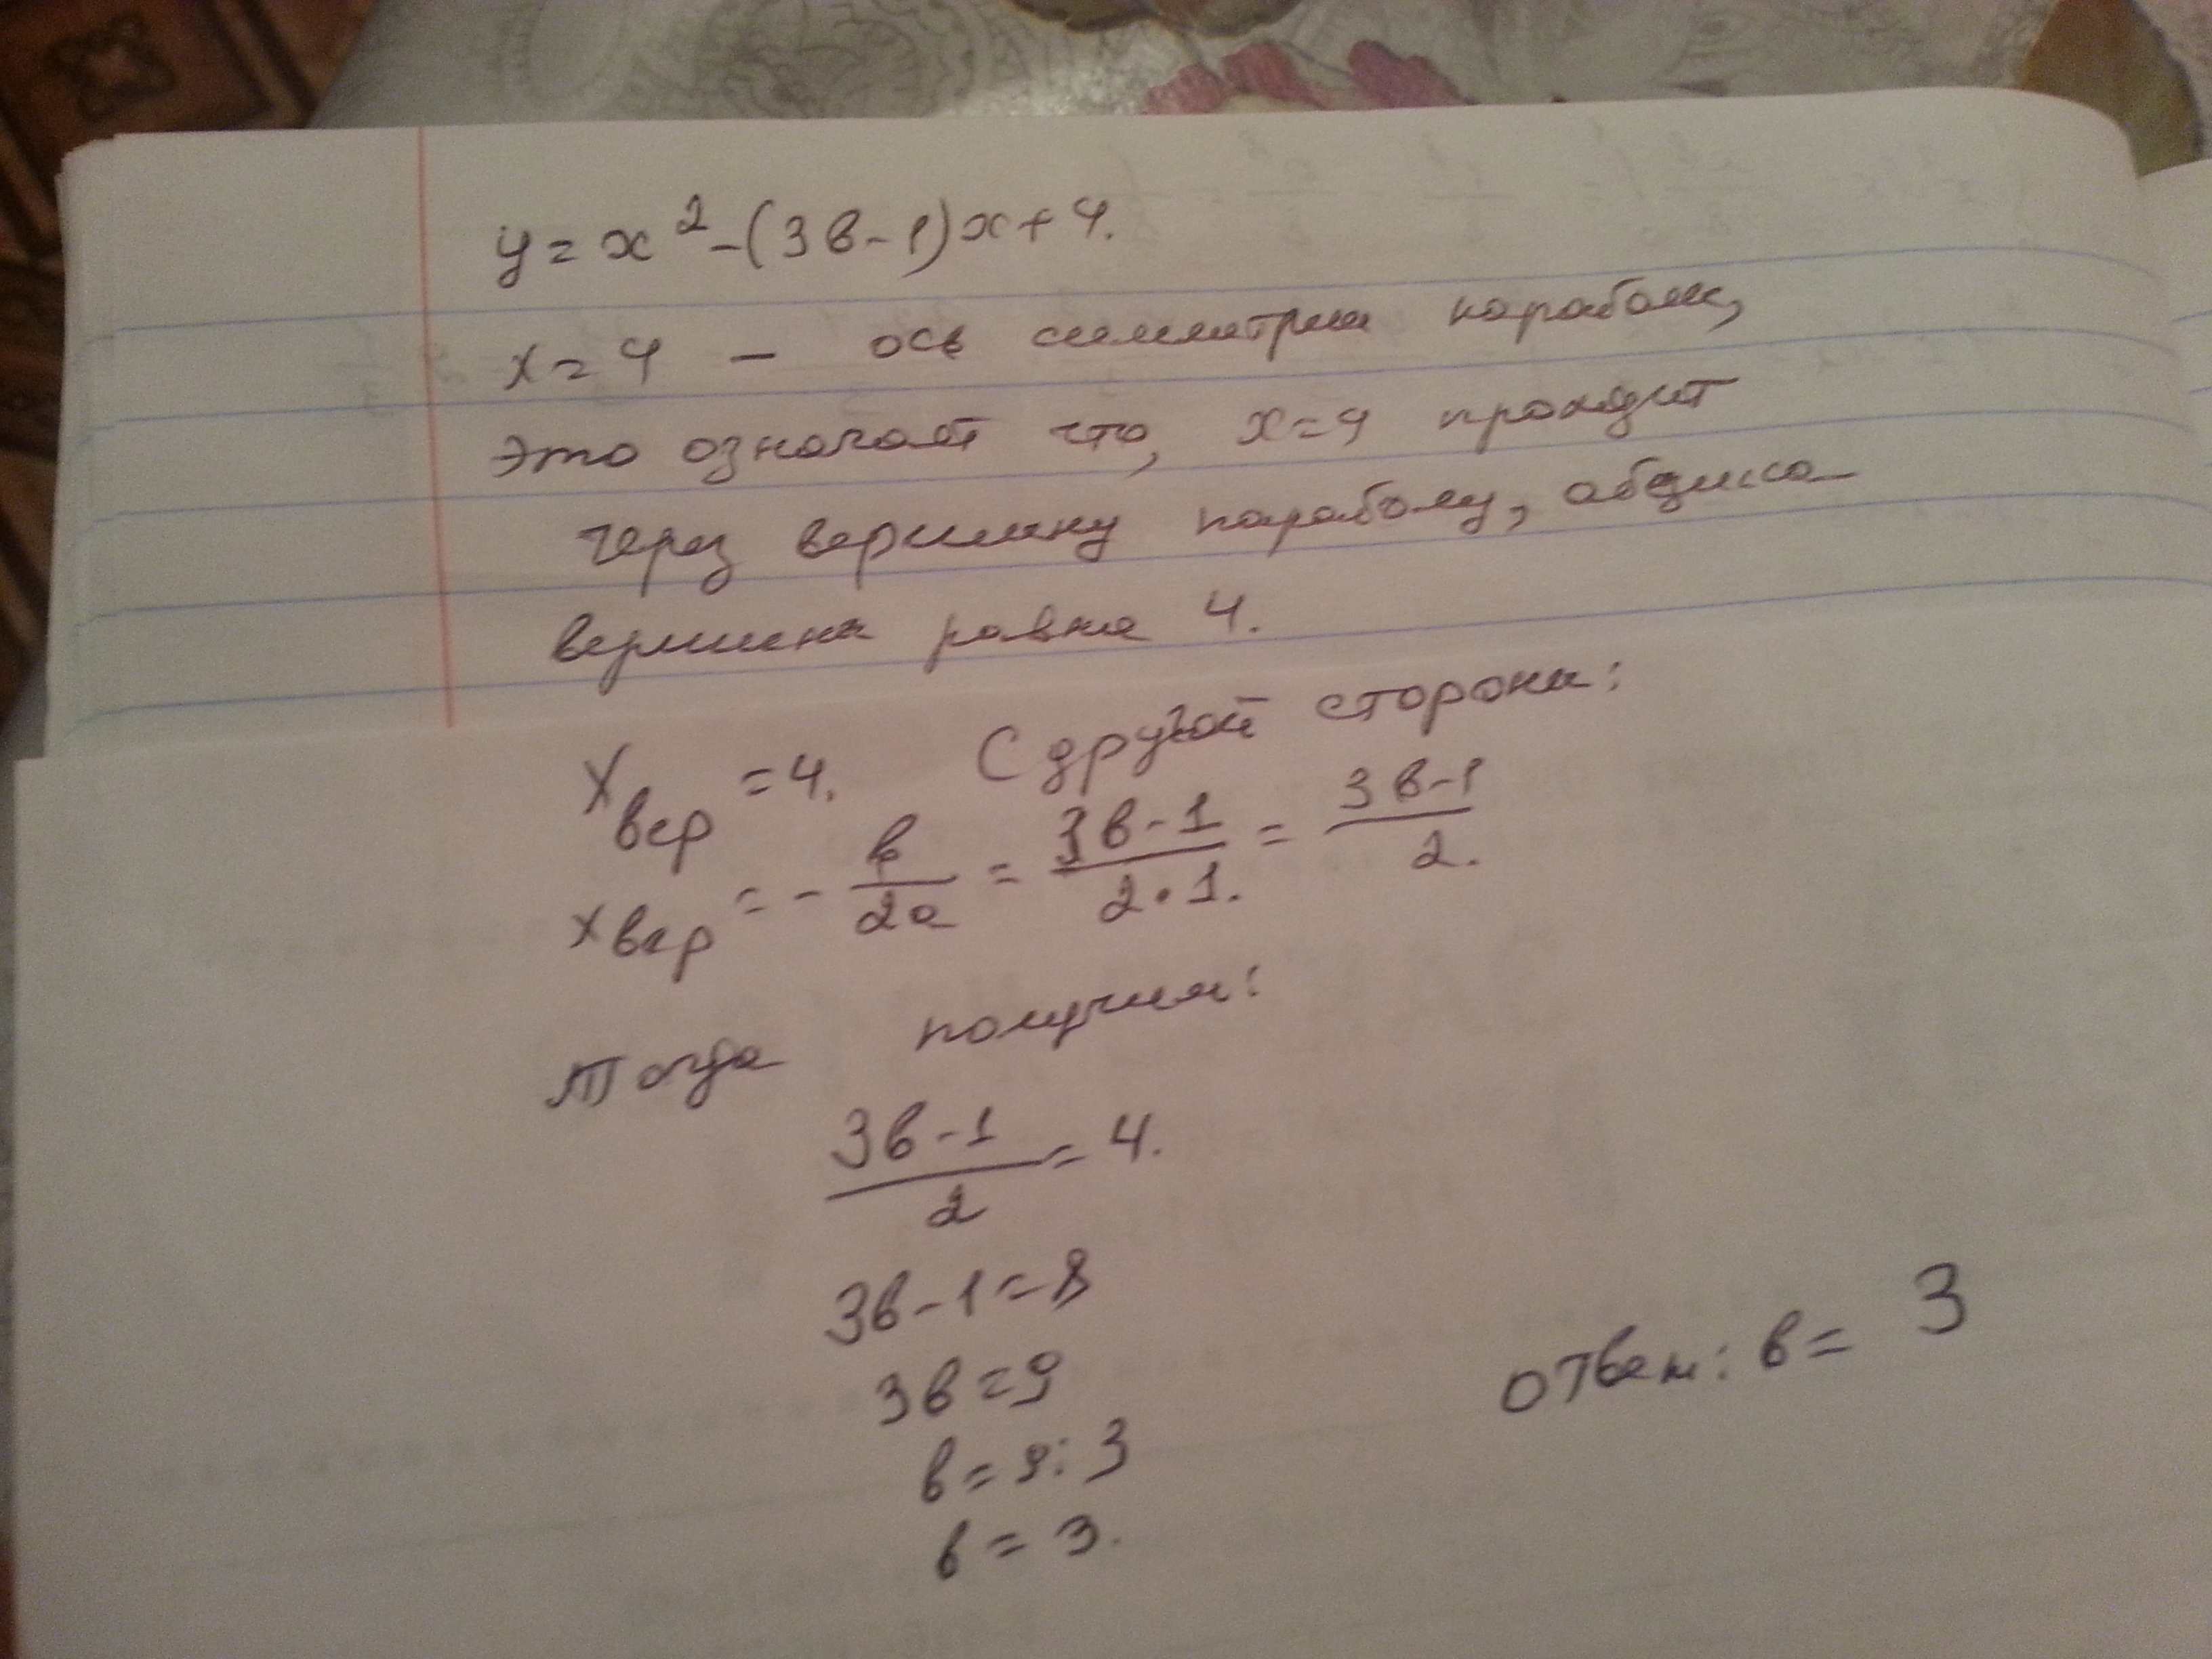 y = x² - (3в - 1)x + 4.
x = 4 — ось симметрии параболы,
это означает что, x = 4 проходит
через вершину параболу, абцисса
вершина равна 4.
x вер = 4. С другой стороны:
x вер = - в/2a = 3в - 1/2 · 1. = 3в - 1/2.
Тогда получим:
3в - 1/2 = 4.
3в - 1 = 8
3в = 9
в = 9 : 3
ответ: в = 3
в = 3.